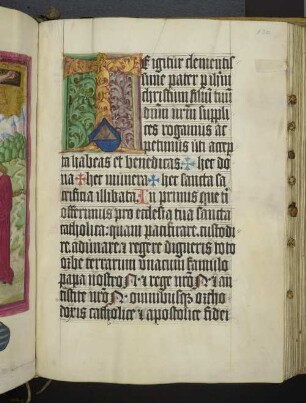 Te igitur clementis
sime pater p dm̄
christum filiū tuū
dūm nr̄m suppli
ces rogamus ac
petimus uti accep
ta habeas et benedicas. ✠ hec do
na ✠ hec munera ✠ hec sancta sa
crificia illibata. In primis que t'
offerimus pro ecclesia tua sancta
catholica: quam pacificare. custodi
re. adunare. et regere digneris toto
orbe terrarum vna cum famulo
papa nostro N. et rege nr̄o N. et an
tistite nr̄o N. omnibusqꝫ ortho
doxis catholice et apostolice fidei